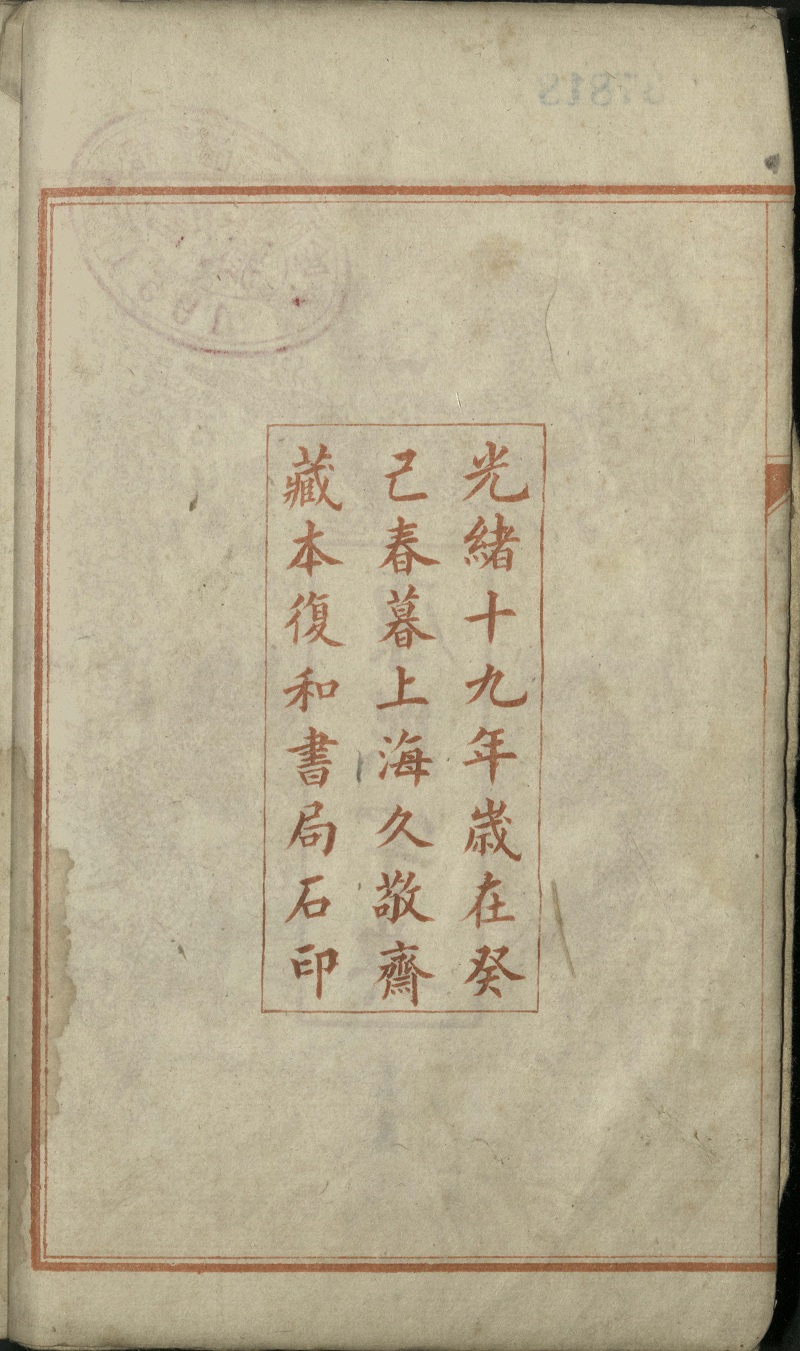 光緒十九年歲在癸
己春暮上海久敬齋
藏本復和書局石印
37818